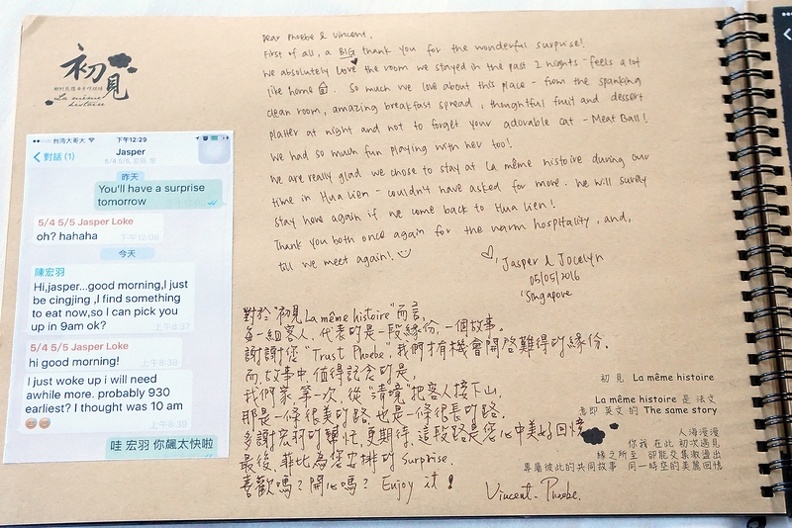 初見
La même histoire
台湾大哥大
下午12:29
對話 (1)
Jasper
昨天
You'll have a surprise
tomorrow
5/4 5/5 Jasper Loke
oh? hahaha
今天
陳宏羽
Hi,jasper...good morning,I just
be cingjing ,I find something
to eat now,so I can pick you
up in 9am ok?
上午8:37
5/4 5/5 Jasper Loke
hi good morning!
上午8:39
I just woke up i will need
awhile more. probably 930
earliest? I thought was 10 am
上午8:39
哇 宏羽 你飆太快啦
Dear Phoebe & Vincent,
First of all, a BIG thank you for the wonderful surprise!
We absolutely love the room we stayed in the past 2 nights - feels a lot
like home. So much we love about this place - from the spanking
clean room, amazing breakfast spread, thoughtful fruit and dessert
platter at night and not to forget your adorable cat - Meat Ball!
We had so much fun playing with her too!
We are really glad we chose to stay at La même histoire during our
time in Hua Lien - couldn't have asked for more. We will surely
stay here again if we come back to Hua Lien!
Thank you both once again for the warm hospitality, and,
till we meet again!
Jasper & Jocelyn
05/05/2016
Singapore
對於"初見 La même histoire"而言,
每一組客人,代表的是一段緣份,一個故事。
謝謝您"Trust Phoebe",我們才有機會開啓難得的緣份.
而故事中,值得記念的是,
我們家第一次,從"清境"把客人接下山,
那是一條很美的路,也是一條很長的路.
多謝宏羽的幫忙,更期待,這段路是您心中美好回憶
最後,菲比為您安排的 Surprise.
喜歡嗎?開心嗎? Enjoy it!
Vincent. Phoebe.
初 見 La même histoire
La même histoire 是 法文
意即 英文 的 The same story
人海漫漫
你我 在此 初次遇見
緣之所至 卻能交集激盪出
專屬彼此的共同故事 同一時空的美麗回憶